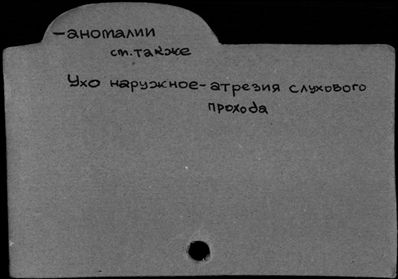 -аномалии
см.также
Ухо наружное-атрезия слухового
прохода